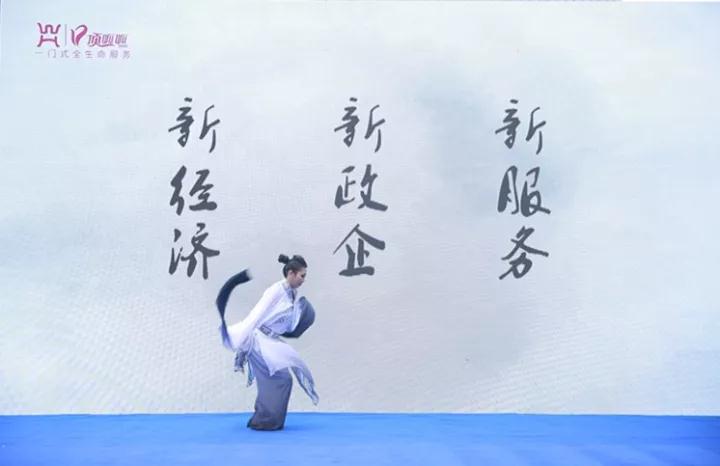 顶呱呱
一门式全生命服务
新经济
新政企
新服务